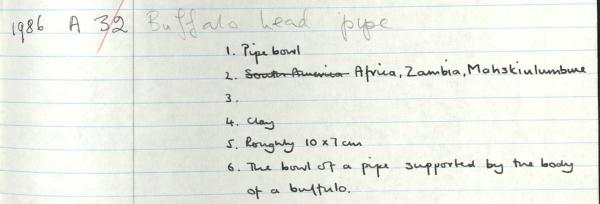 1986 A 32 Buffalo head pipe
1. Pipe bowl
2. South America Africa, Zambia, Mahskiulumbwe
3.
4. Clay
5. Roughly 10 x 7 cm
6. The bowl of a pipe supported by the body
of a buffulo.